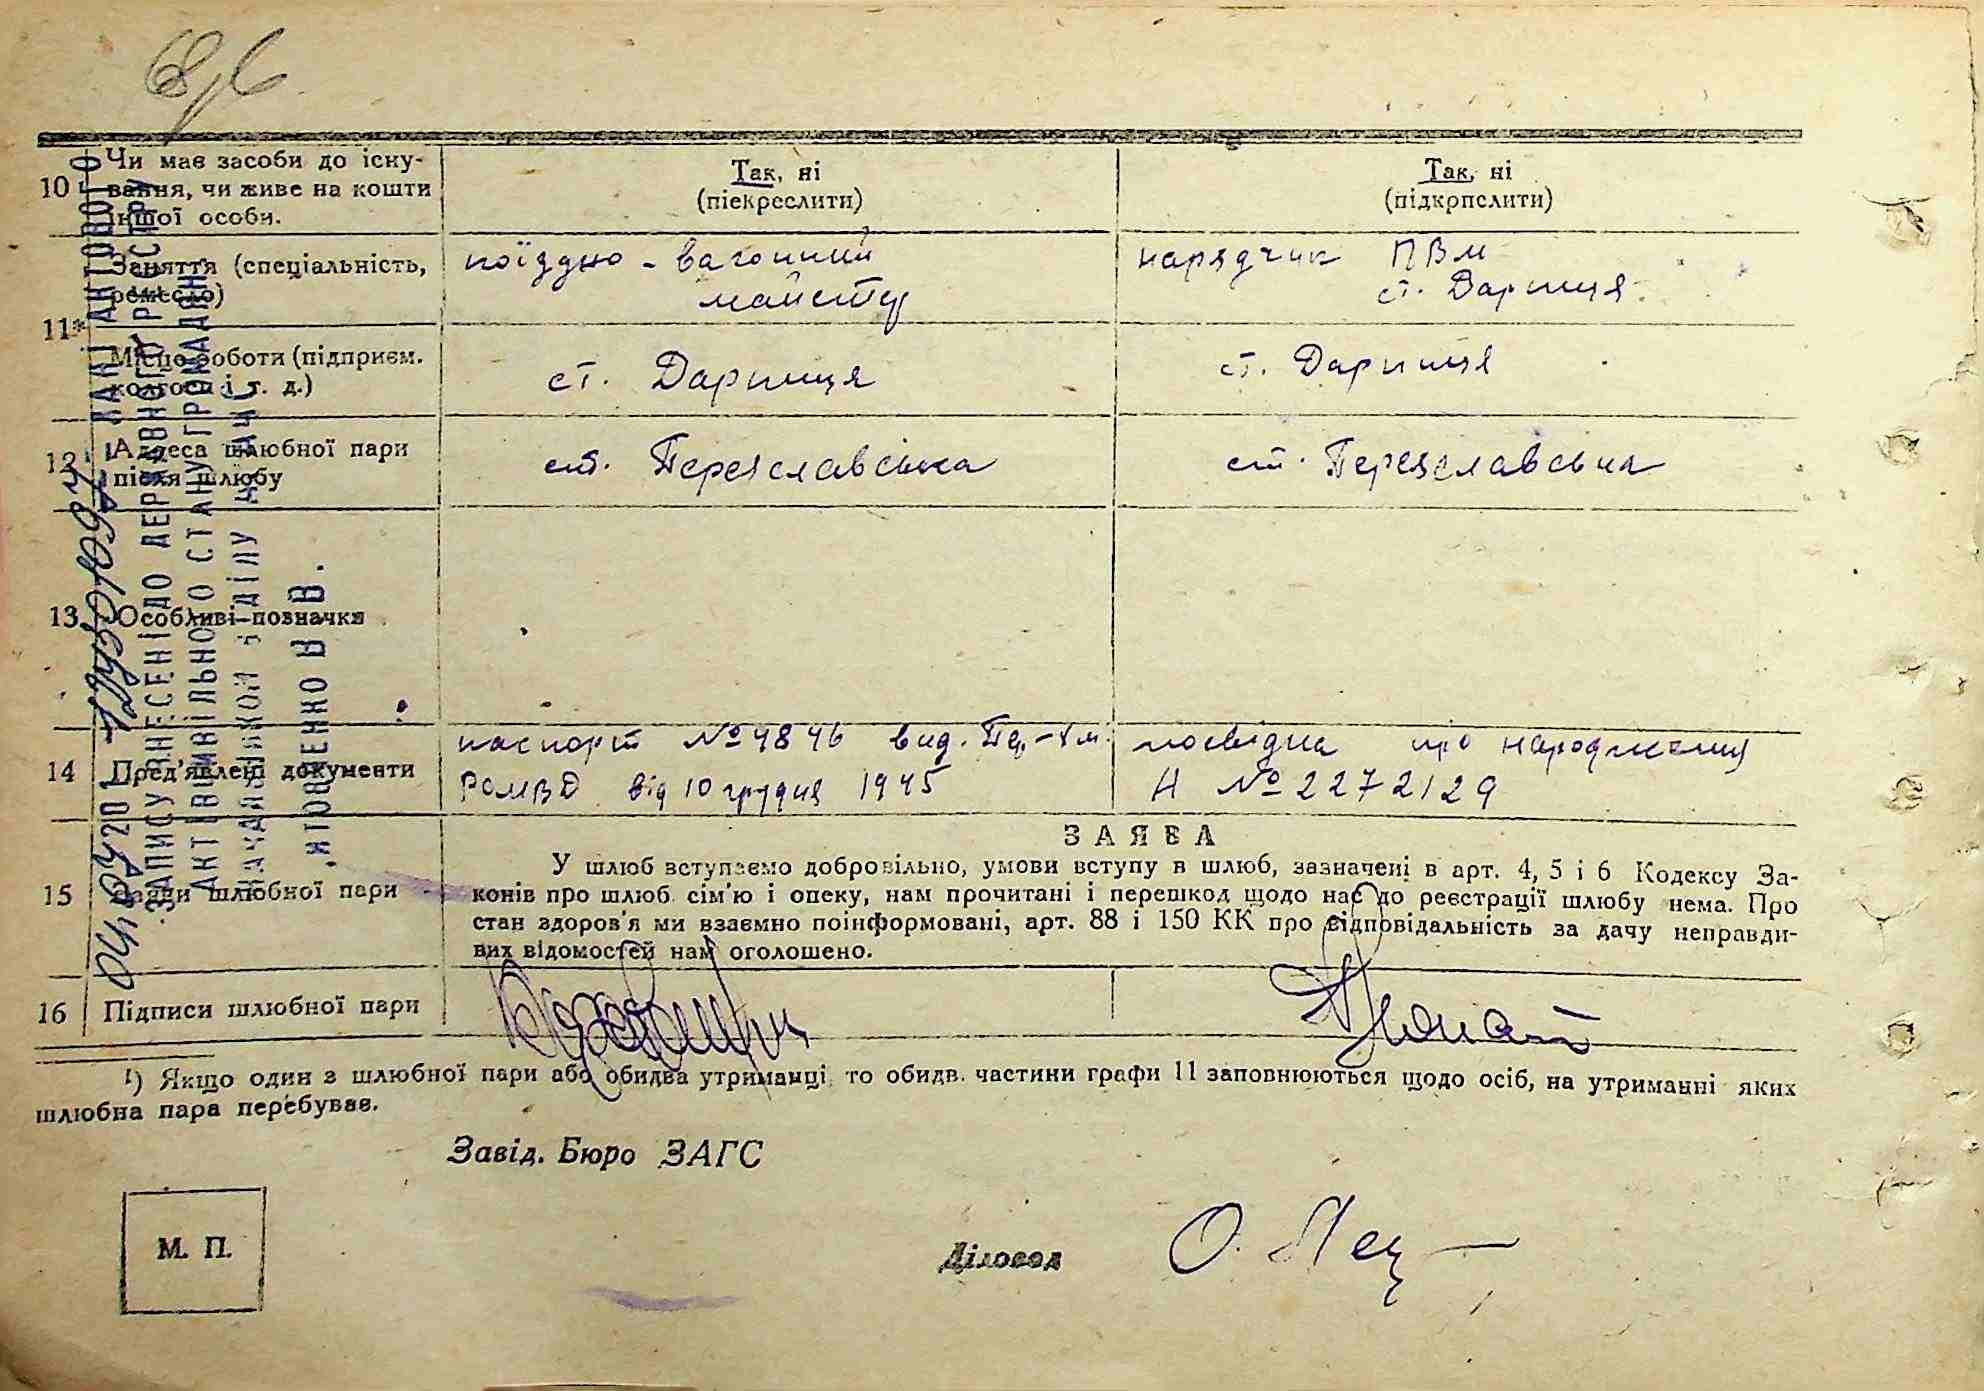 10 Чи має засоби до існу-
вання, чи живе на кошти
іншої особи.
Так, ні
(піекреслити)
Так, ні
(підкрпслити)
11*
Заняття (спеціальність,
ремесло)
поїздно - вагонний
майстер
нарядчик ПВМ
ст. Дарниця
Місце роботи (підприєм.
колгосп і т. д.)
ст. Дарниця
ст. Дарниця
12 Адреса шлюбної пари
після шлюбу
ст. Переяславська
ст. Переяславська
13 Особливі позначки
14 Пред'явлені документи
паспорт № 4846 вид.
РОМВД від 10 грудня 1945
посвідка про народження
Н № 2272129
15 шлюбної пари
ЗАЯВА
У шлюб вступаємо добровільно, умови вступу в шлюб, зазначені в арт. 4, 5 і 6 Кодексу За-
конів про шлюб, сім'ю і опеку, нам прочитані і перешкод щодо нас до реєстрації шлюбу нема. Про
стан здоров'я ми взаємно поінформовані, арт. 88 і 150 КК про відповідальність за дачу неправди-
вих відомостей нам оголошено.
16 Підписи шлюбної пари
¹) Якщо один з шлюбної пари або обидва утриманці, то обидв. частини графи 11 заповнюються щодо осіб, на утриманні яких
шлюбна пара перебуває.
Завід. Бюро ЗАГС
М. П.
Діловод
АКТОВОГО
ЗАПИСУ ВНЕСЕНІ ДО ДЕРЖАВНОГО РЕЄСТРУ
АКТІВ ЦИВІЛЬНОГО СТАНУ ГРОМАДЯН
НАЧАЛЬНИКОМ ВІДДІЛУ
В В.